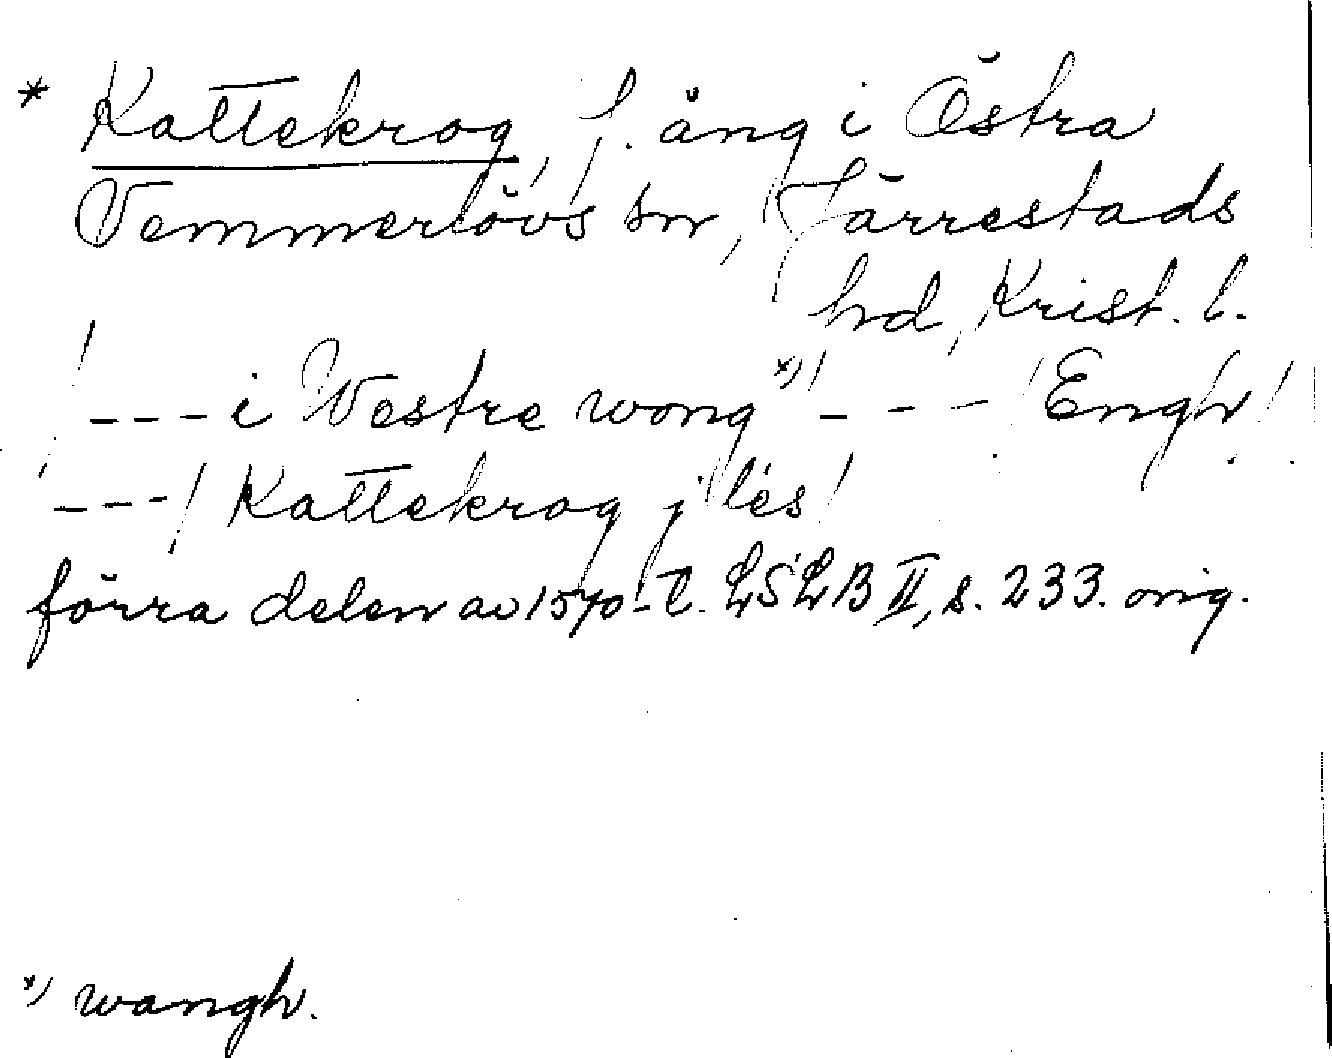 * Kattekrog, f. äng i Östra
Vemmerlövs sn, Järrestads
hd, Krist. l.
/ - - - i Westre wong *) / - - - / Engh /
- - - / Kattekrog j lés /
förra delen av 1570-t. LSLB II, s. 233. orig.
*) wangh.